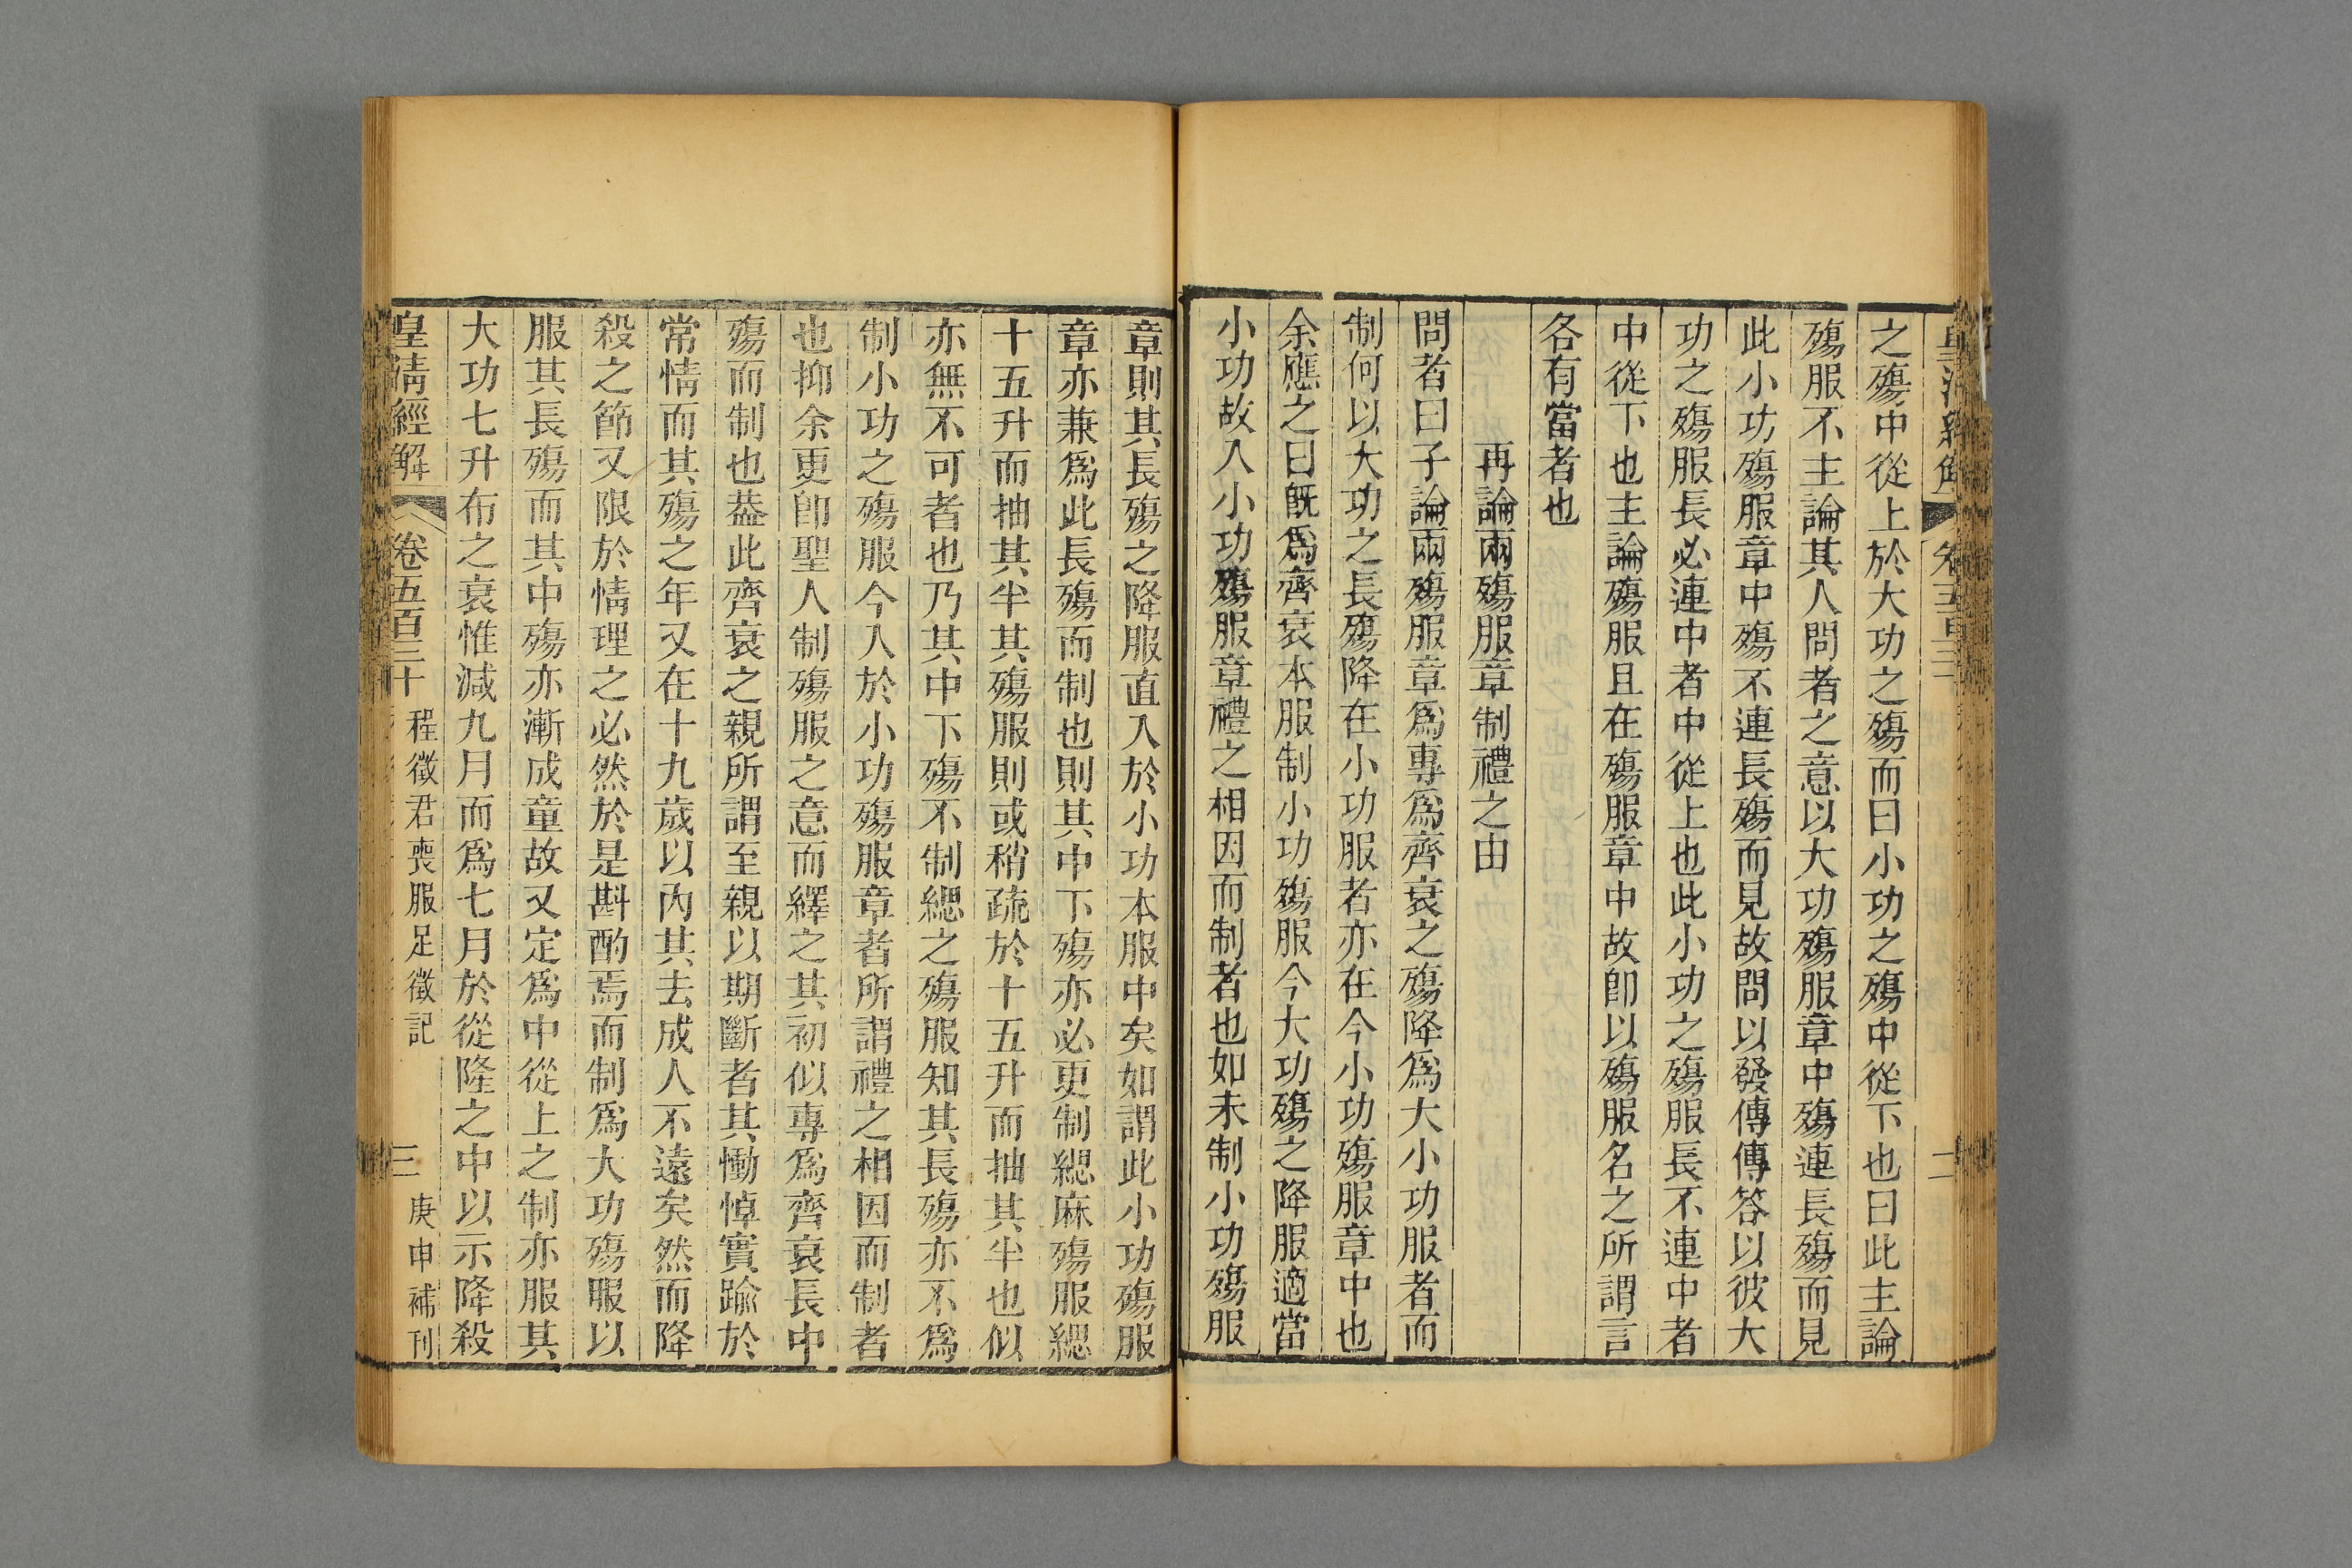 之殤中從上於大功之殤而曰小功之殤中從下也曰此主論
殤服不主論其人問者之意以大功殤服章中殤連長殤而見
此小功殤服章中殤不連長殤而見故問以發傳傳答以彼大
功之殤服長必連中者中從上也此小功之殤服長不連中者
中從下也主論殤服且在殤服章中故卽以殤服名之所謂言
各有當者也
再論兩殤服章制禮之由
問者曰子論兩殤服章爲專爲齊衰之殤降爲大小功服者而
制何以大功之長殤降在小功服者亦在今小功殤服章中也
余應之曰旣爲齊衰本服制小功殤服今大功殤之降服適當
小功故入小功殤服章禮之相因而制者也如未制小功殤服
章則其長殤之降服直入於小功本服中矣如謂此小功殤服
章亦兼爲此長殤而制也則其中下殤亦必更制緦麻殤服緦
十五升而抽其半其殤服則或稍疏於十五升而抽其半也似
亦無不可者也乃其中下殤不制緦之殤服知其長殤亦不爲
制小功之殤服今入於小功殤服章者所謂禮之相因而制者
也抑余更卽聖人制殤服之意而繹之其初似專爲齊衰長中
殤而制也葢此齊衰之親所謂至親以期斷者其慟悼實踰於
常情而其殤之年又在十九歲以內其去成人不遠矣然而降
殺之節又限於情理之必然於是斟酌焉而制爲大功殤服以
服其長殤而其中殤亦漸成童故又定爲中從上之制亦服其
大功七升布之衰惟減九月而爲七月於從隆之中以示降殺
皇淸經解 卷五百三十 程徵君喪服足徵記 三 庚申補刊